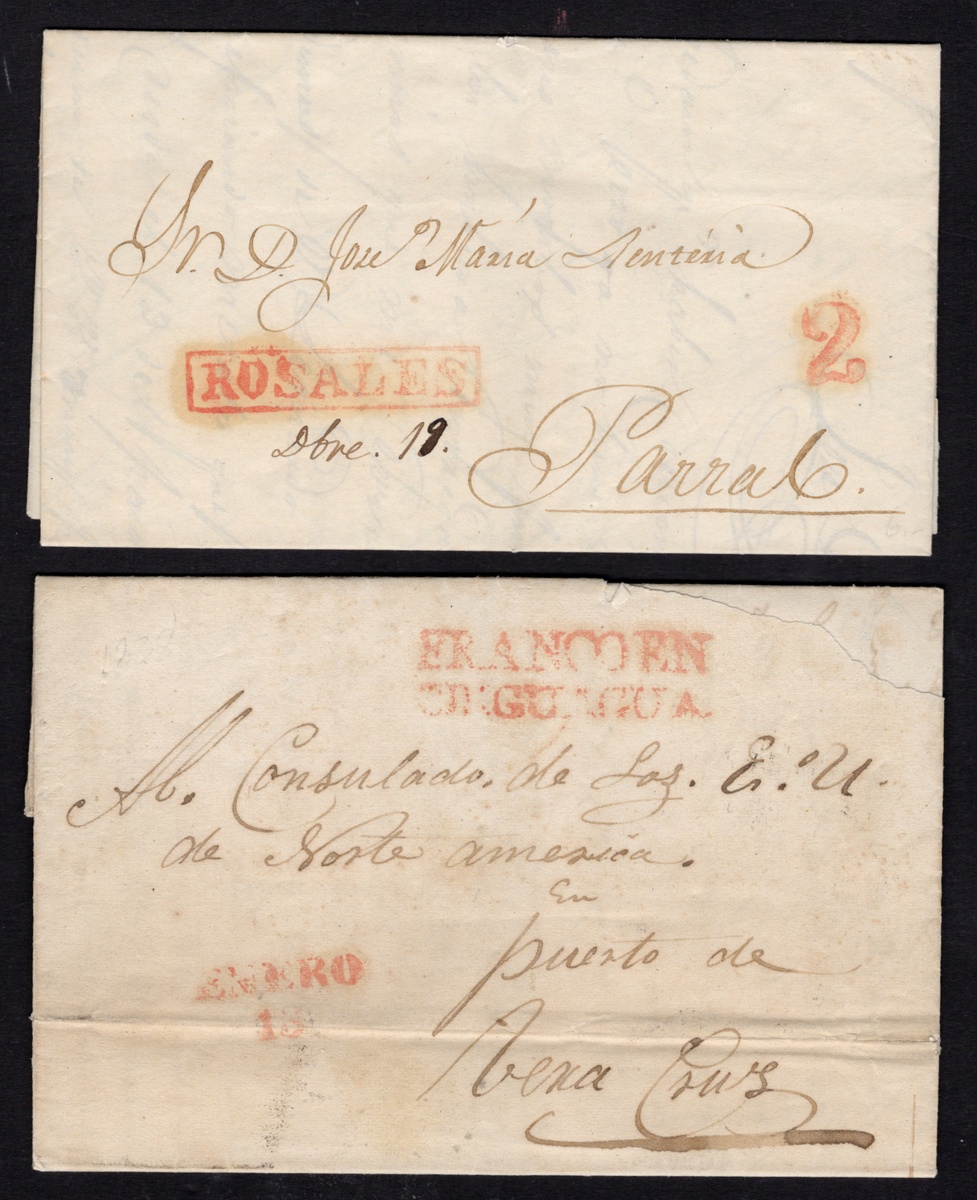 Sr. D. José María Rentería
ROSALES
2
Dbre. 19.
Parral.
FRANCO EN
CHIGUAGUA
Al. Consulado. de Los. E. U.
de Norte america.
En
puerto de
ENERO
13
Vera Cruz